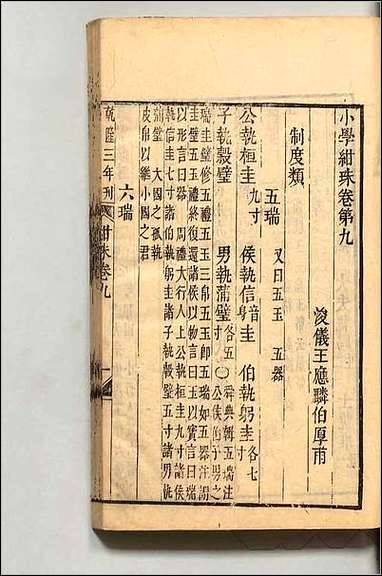 小學紺珠卷第九
浚儀王應麟伯厚甫
制度類
五瑞 又曰五玉 五器
公執桓圭九寸 侯執信音身圭 伯執躬圭各七寸
子執穀璧 男執蒲璧各五寸○舜典輯五瑞注公侯伯子男之
瑞圭璧修五禮五玉三帛五玉卽五瑞如五器注謂
圭璧五玉禮終復還諸侯以物言曰玉以寶言曰瑞
以形言曰器 周禮大行人上公執桓圭九寸諸侯
執信圭七寸諸伯執躬圭諸子執穀璧五寸諸男執
蒲璧 大國之孤執
皮帛以繼小國之君
六瑞
乾隆三年刊 紺珠卷九 一